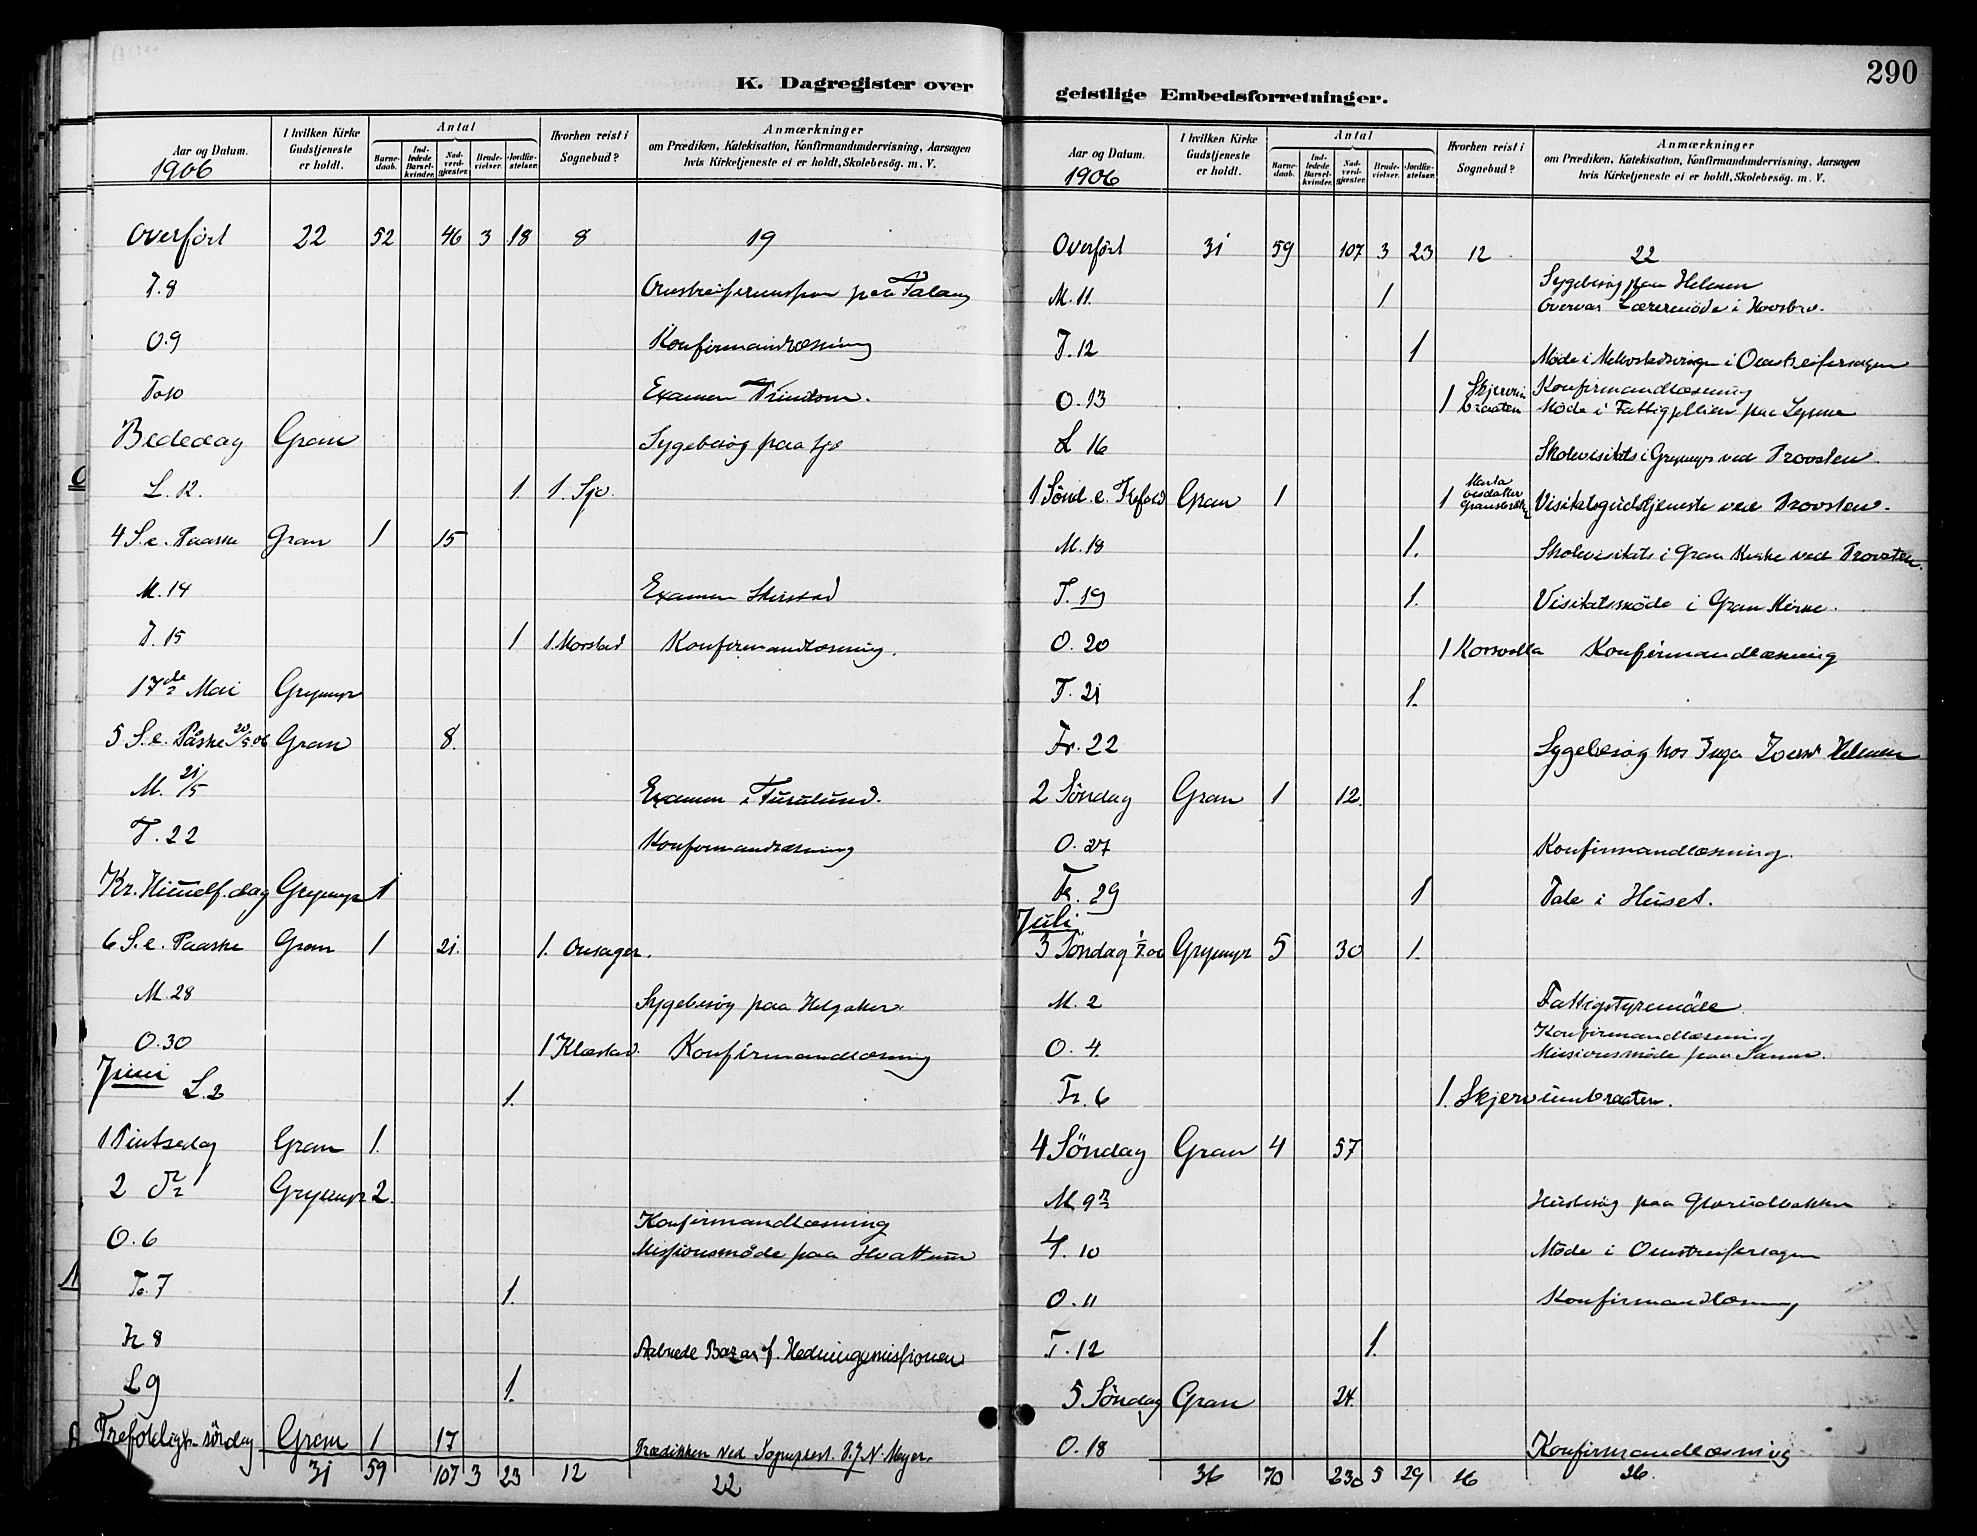 K. Dagregister over
Aar og Datum.
1906
I hvilken Kirke Gudstjeneste er holdt.
Antal
Barne-daab.
Ind-ledede Barsel-kvinder.
Nad-verd-gjæster.
Brude-vielser.
Jordfæ-stelser.
Hvorhen reist i Sognebud?
Anmærkninger
om Prædiken, Katekisation, Konfirmandundervisning, Aarsagen
hvis Kirketjeneste ei er holdt, Skolebesøg. m. V.
Overført 22 52 46 3 18 8 19
T. 8 paa
O. 9 Konfirmandlæsning
To 10 Examen
Bededag Gran Sygebesøg paa Sjo
L. 12. 1. 1. Sjo.
4 S. e. Paaske Gran 1 15
M. 14 Examen
T. 15 1 1 Morstad Konfirmandlæsning.
17de Mai Grymyr
5 S. e. Påske 20/5 06 Gran 8.
M. 21/5 Examen i
T. 22 Konfirmandlæsning
Kr. Himmelf. dag Grymyr 1
6 S. e. Paaske Gran 1 21. 1. Onsager.
M. 28 Sygebesøg paa Helgaker.
O. 30 1 Klæstad. Konfirmandlæsning
Juni
L. 2 1.
1 Pintsedag Gran 1.
2 Grymyr 2.
O. 6 Konfirmandlæsning
Missionsmøde paa Hvattum
To. 7 1.
Fr 8 Aabnede Bazar f. Hedningemissionen
L 9 1.
Trefoldigh. søndag Gran 1 17 Prædiken ved Sogneprest N. Meyer.
31 59 107 3 23 12 22
290
geistlige Embedsforretninger.
Aar og Datum.
1906
I hvilken Kirke Gudstjeneste er holdt.
Antal
Barne-daab.
Ind-ledede Barsel-kvinder.
Nad-verd-gjæster.
Brude-vielser.
Jordfæ-stelser.
Hvorhen reist i Sognebud?
Anmærkninger
om Prædiken, Katekisation, Konfirmandundervisning, Aarsagen
hvis Kirketjeneste ei er holdt, Skolebesøg. m. V.
Overført 31 59 107 3 23 12 22
Sygebesøg paa Helmen
M. 11. 1 Overvar Lærermøde i
T. 12 1 Møde i i Omstreifersagen
O. 13 1 Konfirmandlæsning
Møde i paa
L 16 Skolevisitats i Grymyr ved Provsten.
1 Sønd. e. Trefold Gran 1 1 Visitatsgudstjeneste ved Provsten.
M. 18 1. Skolevisitats i Gran Kirke ved Provsten.
T. 19 1. Visitatsmøde i Gran Kirke.
O. 20 1 Korsvolla Konfirmandlæsning
T. 21 1.
Fr. 22 Sygebesøg hos Inga Helmen
2 Søndag Gran 1 12.
O. 27 Konfirmandlæsning.
Fr. 29 1 Tale i Huset.
Juli
3 Søndag 1/7.06 Grymyr 5 30 1.
M. 2 Fattigstyremøde.
Konfirmandlæsning
O. 4. Missionsmøde paa Sanne.
Fr. 6 1. Skjervumbraaten.
4 Søndag Gran 4 57
M 9 Husbesøg paa Glorudbakken
T. 10 Møde i Omstreifersagen
O. 11 Konfirmandlæsning
T. 12 1.
5 Søndag Gran 24.
O. 18 Konfirmandlæsning
36 70 230 5 29 16 26.